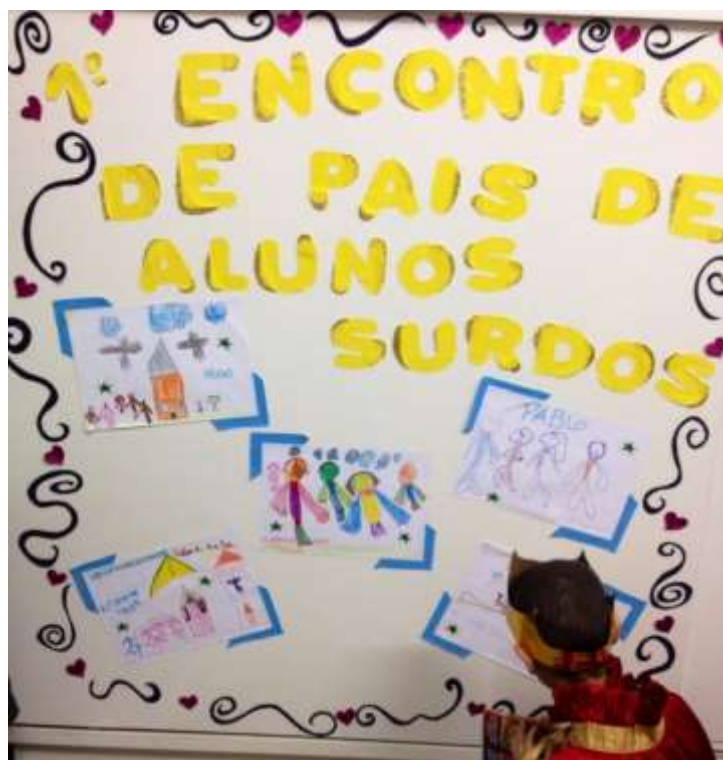 1º ENCONTRO
DE PAIS DE
ALUNOS
SURDOS
PABLO